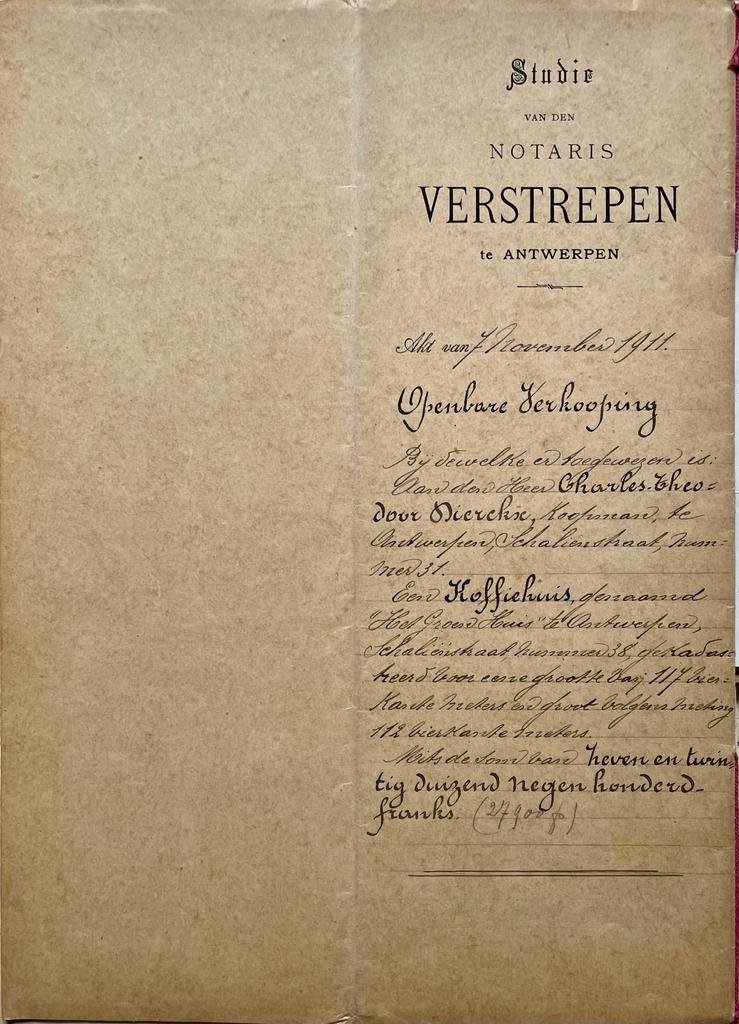 Studie
VAN DEN
NOTARIS
VERSTREPEN
te ANTWERPEN
Akt van 7 November 1911.
Openbare Verkooping
Bij dewelke er toegewezen is:
Aan den Heer Charles-Theo=
door Dierckx, Koopman, te
Antwerpen, Schalienstraat, num=
mer 31.
Een Koffiehuis, genaamd
"Het Groen Huis" te Antwerpen,
Schaliënstraat, nummer 38, gekadas=
treerd voor eene grootte van 117 vier=
kante meters en groot volgens meting
112 vierkante meters.
Mits de som van zeven en twin=
tig duizend negen honderd-
franks. (27900 f)